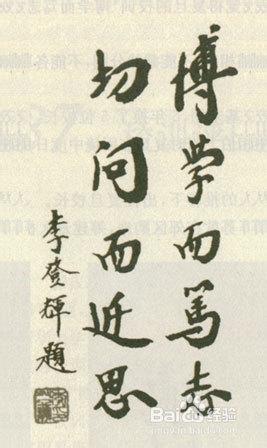 博学而篤志
切问而近思
李登輝題
Baidu经验